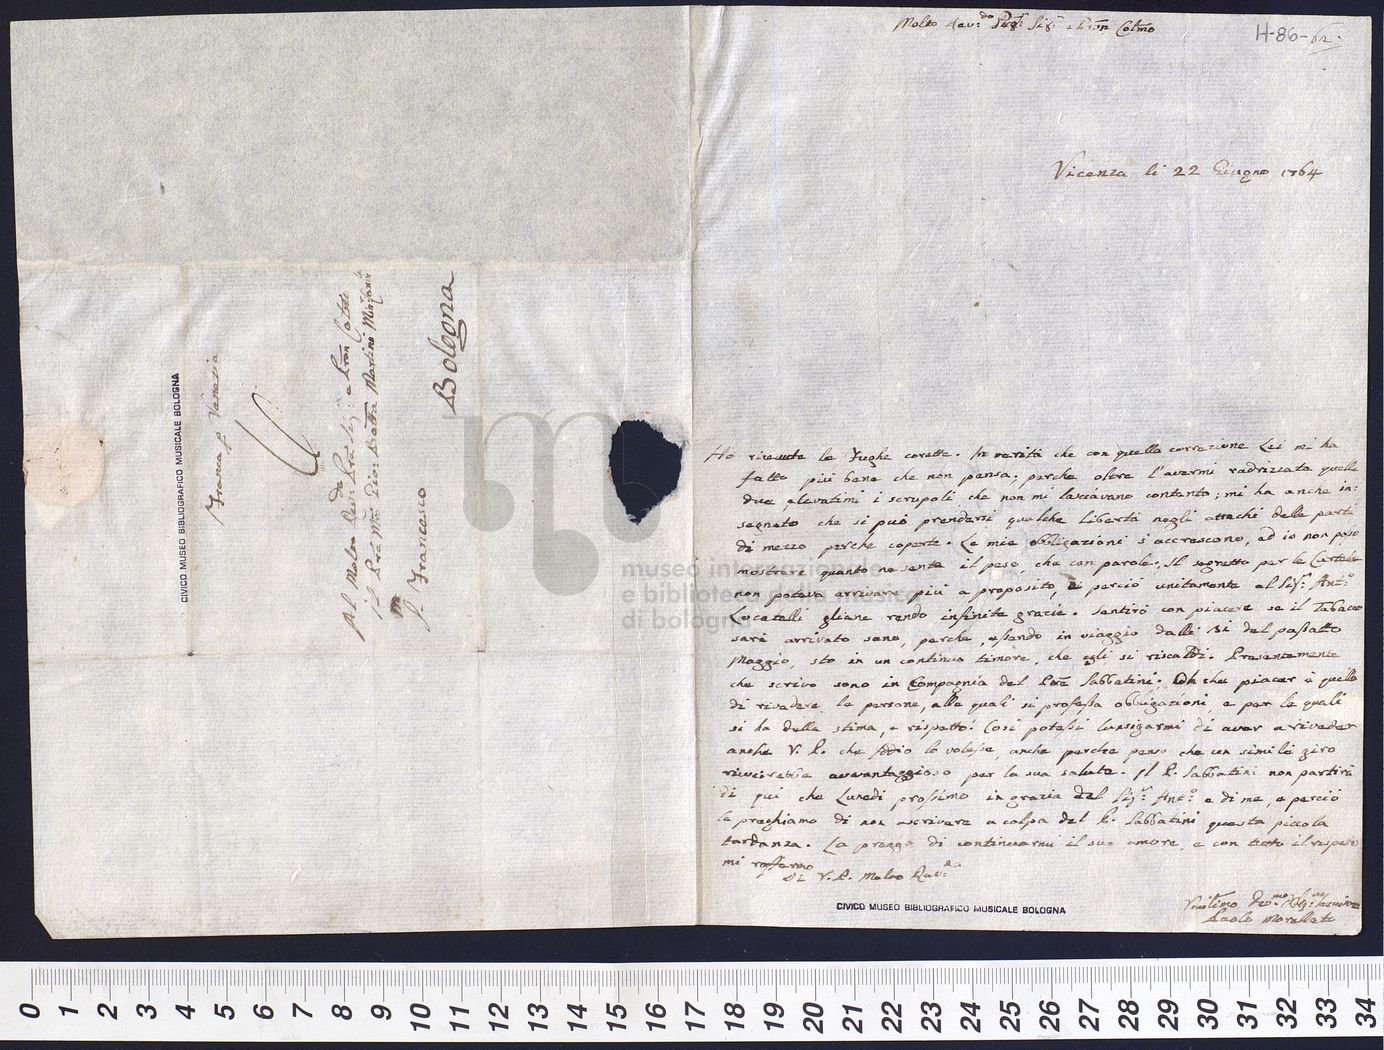 Molto Rev:do Pre: Sig:r e Pron Colmo
H-86-62.
Vicenza li 22 Giugno 1764
Ho ricevute le Fughe corette. In verità che con quella correzione Lei mi ha
fatto più bene che non pensa; perche oltre l'avermi radrizzate quelle
due, elevatimi i scrupoli che non mi lasciavano contento; mi ha anche in:
segnato che si può prendersi qualche libertà negli attachi delle parti
di mezzo perche coperte. Le mie obbligazioni s'accrescono, ad io non posso
mostrare quanto ne sente il peso, che con parole. Il segretto per le Cartelle
non poteva arrivare più a proposito, e perciò unitamente al Sig:r Ant:o
Locatelli gliene rendo infinite grazie. Sentirò con piacere se il Tabacco
sarà arrivato sano, perche, essendo in viaggio dalli 31 del passatto
Maggio, sto in un continuo timore, che egli si riscaldi. Presentemente
che scrivo sono in Compagnia del Pre Sabbatini. Oh che piacer è quello
di rivedere le persone, alle quali si professa obbligazioni, e per le quali
si ha della stima, e rispetto! Così potessi lusigarmi di aver a riveder
anche V. P. che Iddio lo volesse, anche perche penso che un simile giro
riuscirebbe avvantaggioso per la sua salute. Il P. Sabbatini non partirà
di qui che Lunedì prossimo in grazia del Sig:r Ant:o e di me, e perciò
la preghiamo di non ascrivere a colpa del P. Sabbatini questa piccola
tardanza. La prego di continuarmi il suo amore, e con tutto il rispetto
mi raffermo
Di V. P. Molto Rev:da
Paolo Morellati
CIVICO MUSEO BIBLIOGRAFICO MUSICALE BOLOGNA
CIVICO MUSEO BIBLIOGRAFICO MUSICALE BOLOGNA
Franca p Venezia
Al Molto Rev:do Pre Sig:r e Pron Colmo
Il Pre Mro Gio: Batta Martini Min: Conle
S. Francesco
Bologna
museo internazionale
e biblioteca della musica
di bologna
0 1 2 3 4 5 6 7 8 9 10 11 12 13 14 15 16 17 18 19 20 21 22 23 24 25 26 27 28 29 30 31 32 33 34